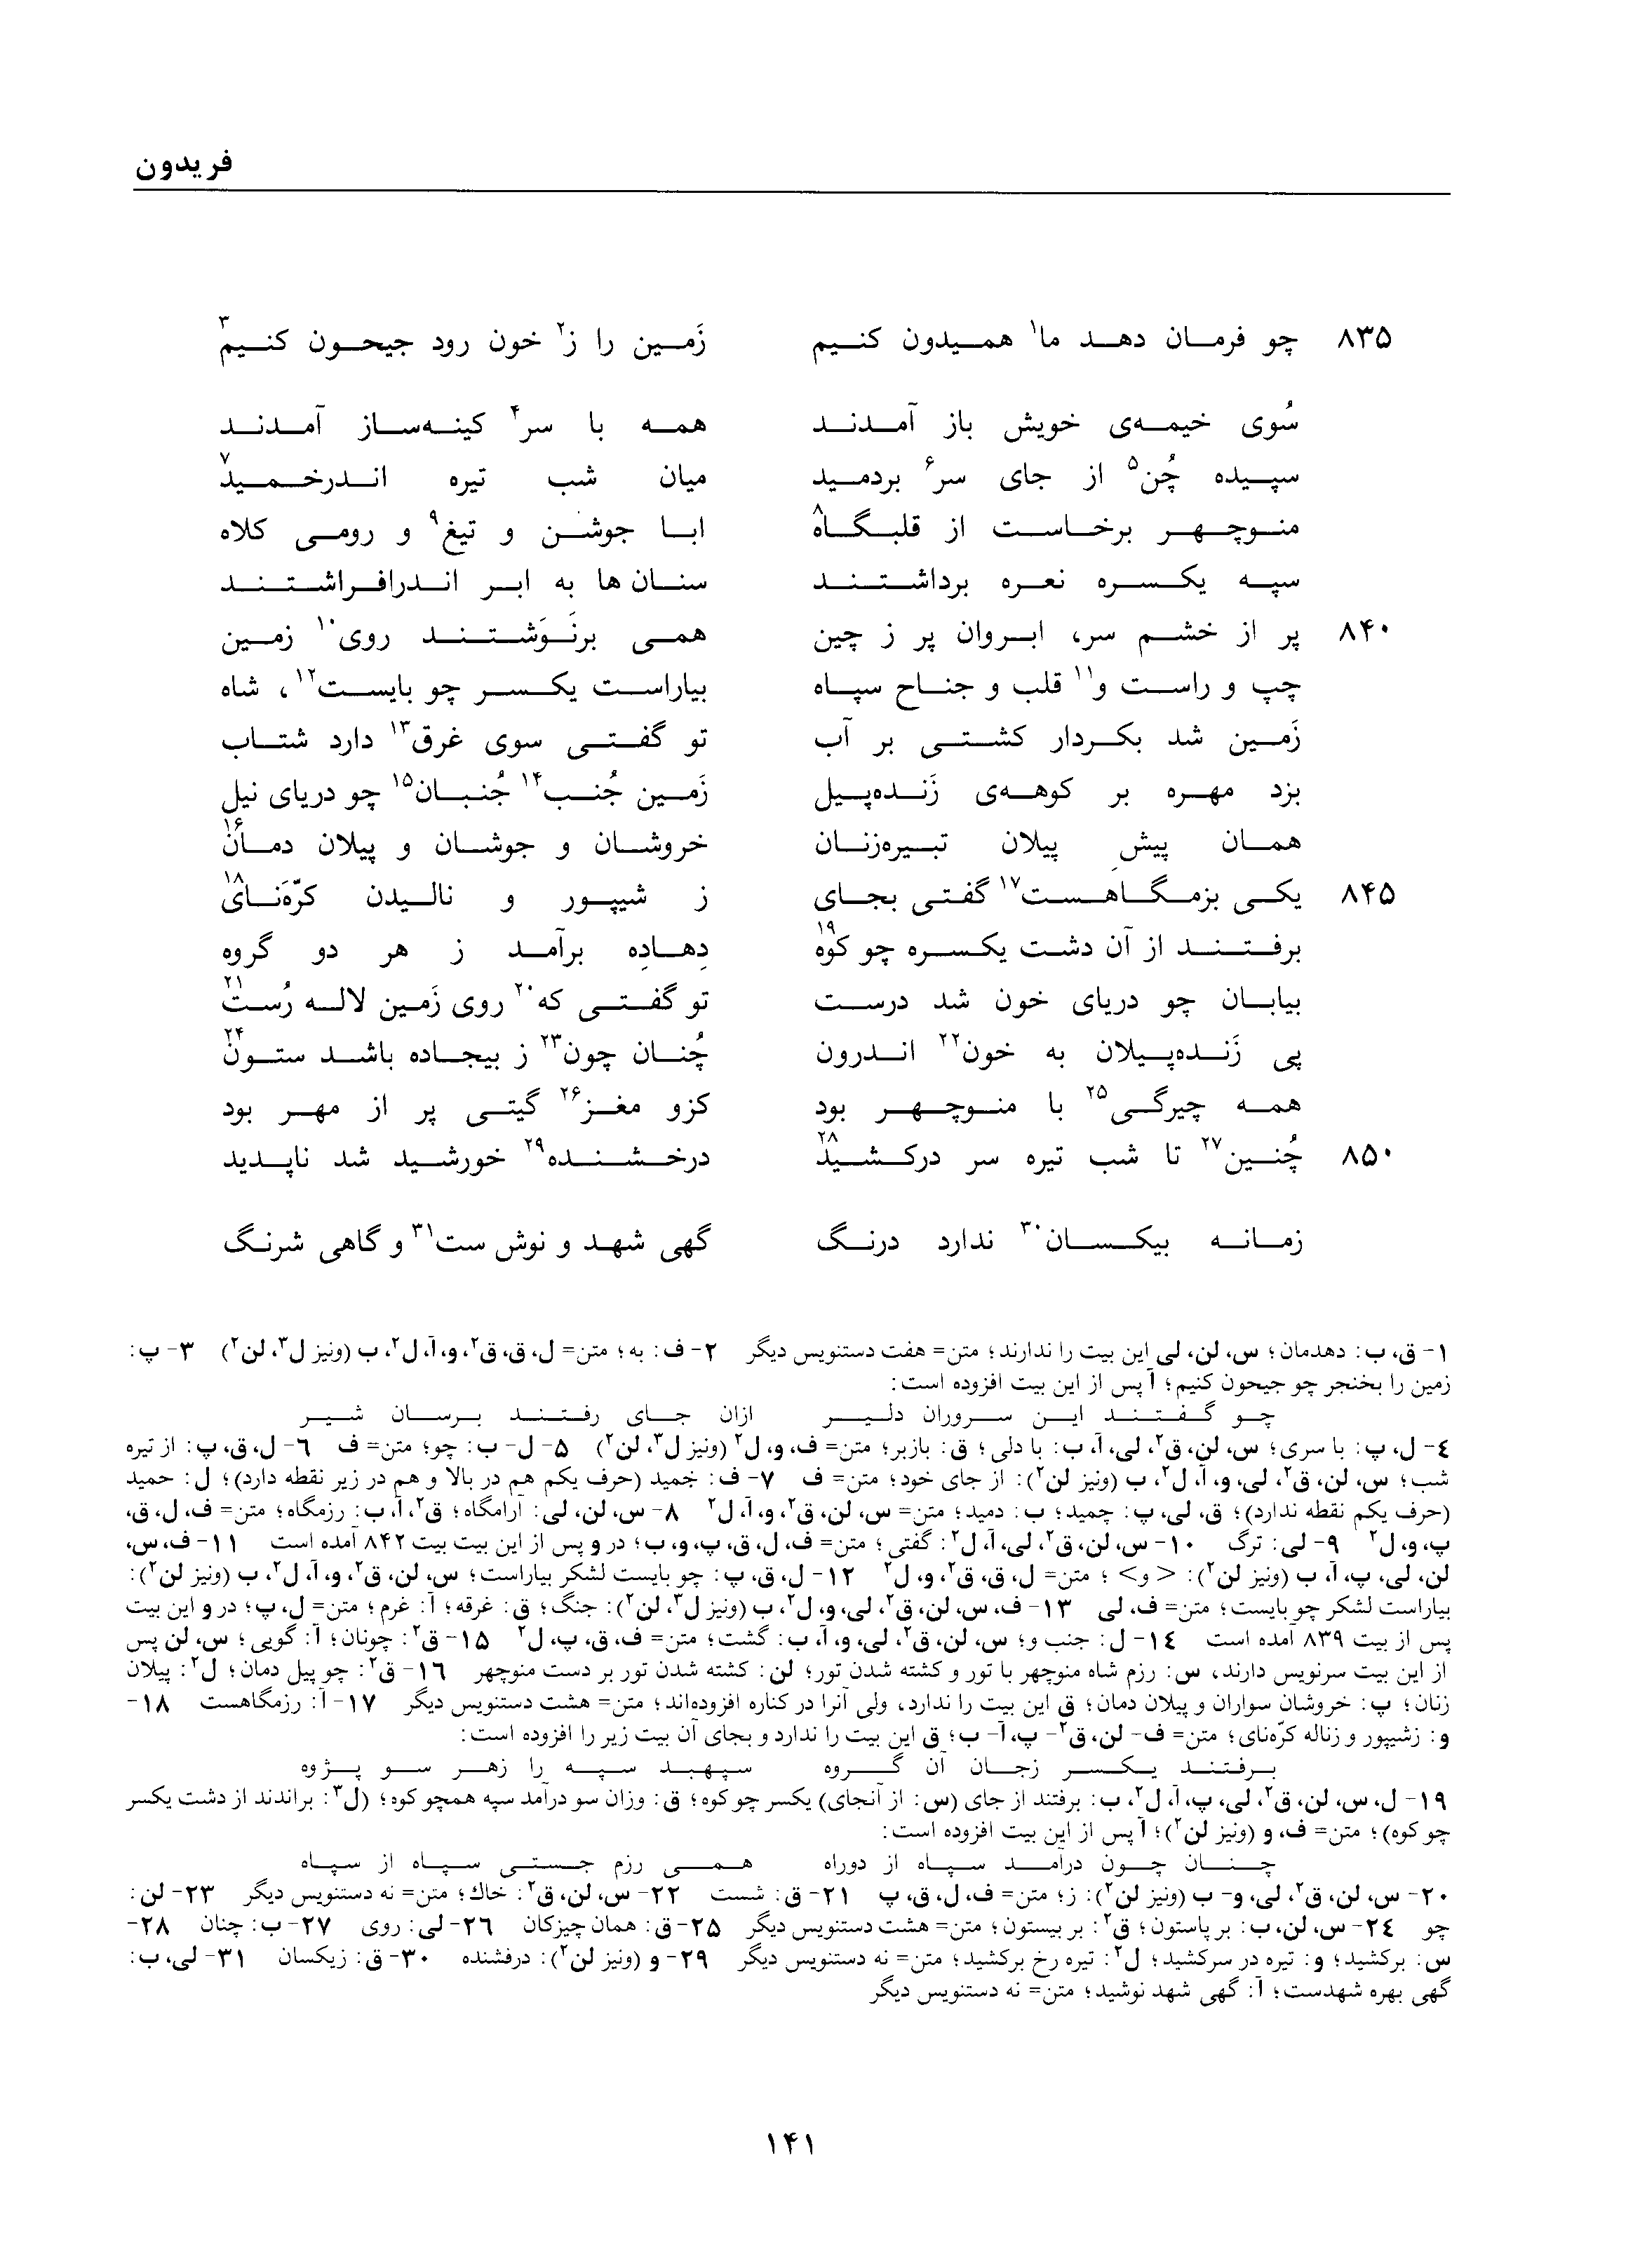 فریدون
۸۳۵ چو فرمان دهد ما۱ همیدون کنیم زَمین را ز۲ خون رود جیحون کنیم۳
سُوی خیمه‌ی خویش باز آمدند همه با سر۴ کینه‌ساز آمدند
سپیده چُن۵ از جای سر۶ بردمید میان شب تیره اندرخمید۷
منوچهر برخاست از قلبگاه۸ ابا جوشن و تیغ۹ و رومی کلاه
سپه یکسره نعره برداشتند سنان ها به ابر اندرافراشتند
۸۴۰ پر از خشم سر، ابروان پر ز چین همی برنَوَشتند روی۱۰ زمین
چپ و راست و۱۱ قلب و جناح سپاه بیاراست یکسر چو بایست۱۲، شاه
زَمین شد بکردار کشتی بر آب تو گفتی سوی غرق۱۳ دارد شتاب
بزد مهره بر کوهه‌ی زَنده‌پیل زَمین جُنب۱۴ جُنبان۱۵ چو دریای نیل
همان پیشِ پیلان تبیره‌زنان خروشان و جوشان و پیلان دمان۱۶
۸۴۵ یکی بزمگاهست۱۷ گفتی بجای ز شیپور و نالیدن کرّه‌نای۱۸
برفتند از آن دشت یکسره چو کوه۱۹ دِهادِه برآمد ز هر دو گروه
بیابان چو دریای خون شد درست تو گفتی که۲۰ روی زَمین لاله رُست۲۱
پی زَنده‌پیلان به خون۲۲ اندرون چُنان چون۲۳ ز بیجاده باشد ستون۲۴
همه چیرگی۲۵ با منوچهر بود کزو مغز۲۶ گیتی پر از مهر بود
۸۵۰ چُنین۲۷ تا شب تیره سر درکشید۲۸ درخشنده۲۹ خورشید شد ناپدید
زمانه بیکسان۳۰ ندارد درنگ گهی شهد و نوش ست۳۱ و گاهی شرنگ
۱- ق، ب: دهدمان؛ س، لن، لی این بیت را ندارند؛ متن= هفت دستنویس دیگر ۲- ف: به؛ متن= ل، ق، ق۲، و، آ، ل۲، ب (ونیز ل۳، لن۲) ۳- پ:
زمین را بخنجر چو جیحون کنیم؛ آ پس از این بیت افزوده است:
چو گفتند این سروران دلیر ازان جای رفتند برسان شیر
٤- ل، پ: با سری؛ س، لن، ق۲، لی، آ، ب: با دلی؛ ق: بازبر؛ متن= ف، و، ل۲ (ونیز ل۳، لن۲) ۵- ل- ب: چو؛ متن= ف ٦- ل، ق، پ: از تیره
شب؛ س، لن، ق۲، لی، و، آ، ل۲، ب (ونیز لن۲): از جای خود؛ متن= ف ۷- ف: خمید (حرف یکم هم در بالا و هم در زیر نقطه دارد)؛ ل: حمید
(حرف یکم نقطه ندارد)؛ ق، لی، پ: چمید؛ ب: دمید؛ متن= س، لن، ق۲، و، آ، ل۲ ۸- س، لن، لی: آرامگاه؛ ق۲، آ، ب: رزمگاه؛ متن= ف، ل، ق،
پ، و، ل۲ ۹- لی: ترگ ۱۰- س، لن، ق۲، لی، آ، ل۲: گفتی؛ متن= ف، ل، ق، پ، و، ب؛ در و پس از این بیت بیت ۸۴۲ آمده است ۱۱- ف، س،
لن، لی، پ، آ، ب (ونیز لن۲): <و> ؛ متن= ل، ق، ق۲، و، ل۲ ۱۲- ل، ق، پ: چو بایست لشکر بیاراست؛ س، لن، ق۲، و، آ، ل۲، ب (ونیز لن۲):
بیاراست لشکر چو بایست؛ متن= ف، لی ۱۳- ف، س، لن، ق۲، لی، و، ل۲، ب (ونیز ل۳، لن۲): جنگ؛ ق: غرقه؛ آ: غرم؛ متن= ل، پ؛ در و این بیت
پس از بیت ۸۳۹ آمده است ۱٤- ل: جنب و؛ س، لن، ق۲، لی، و، آ، ب: گشت؛ متن= ف، ق، پ، ل۲ ۱۵- ق۲: چونان؛ آ: گویی؛ س، لن پس
از این بیت سرنویس دارند، س: رزم شاه منوچهر با تور و کشته شدن تور؛ لن: کشته شدن تور بر دست منوچهر ۱٦- ق۲: چو پیل دمان؛ ل۲: پیلان
زنان؛ پ: خروشان سواران و پیلان دمان؛ ق این بیت را ندارد، ولی آنرا در کناره افزوده‌اند؛ متن= هشت دستنویس دیگر ۱۷- آ: رزمگاهست ۱۸-
و: زشیپور و زناله کرّه‌نای؛ متن= ف- لن، ق۲- پ، آ- ب؛ ق این بیت را ندارد و بجای آن بیت زیر را افزوده است:
برفتند یکسر زجان آن گروه سپهبد سپه را زهر سو پژوه
۱۹- ل، س، لن، ق۲، لی، پ، آ، ل۲، ب: برفتند از جای (س: از آنجای) یکسر چو کوه؛ ق: وزان سو درآمد سپه همچو کوه؛ (ل۳: براندند از دشت یکسر
چو کوه)؛ متن= ف، و (ونیز لن۲)؛ آ پس از این بیت افزوده است:
چنان چون درآمد سپاه از دوراه همی رزم جستی سپاه از سپاه
۲۰- س، لن، ق۲، لی، و- ب (ونیز لن۲): ز؛ متن= ف، ل، ق، پ ۲۱- ق: شست ۲۲- س، لن، ق۲: خاك؛ متن= نه دستنویس دیگر ۲۳- لن:
چو ۲٤- س، لن، ب: بر پاستون؛ ق۲: بر بیستون؛ متن= هشت دستنویس دیگر ۲۵- ق: همان چیزکان ۲٦- لی: روی ۲۷- ب: چنان ۲۸-
س: برکشید؛ و: تیره در سرکشید؛ ل۲: تیره رخ برکشید؛ متن= نه دستنویس دیگر ۲۹- و (ونیز لن۲): درفشنده ۳۰- ق: زیکسان ۳۱- لی، ب:
گهی بهره شهدست؛ آ: گهی شهد نوشید؛ متن= نه دستنویس دیگر
۱۴۱